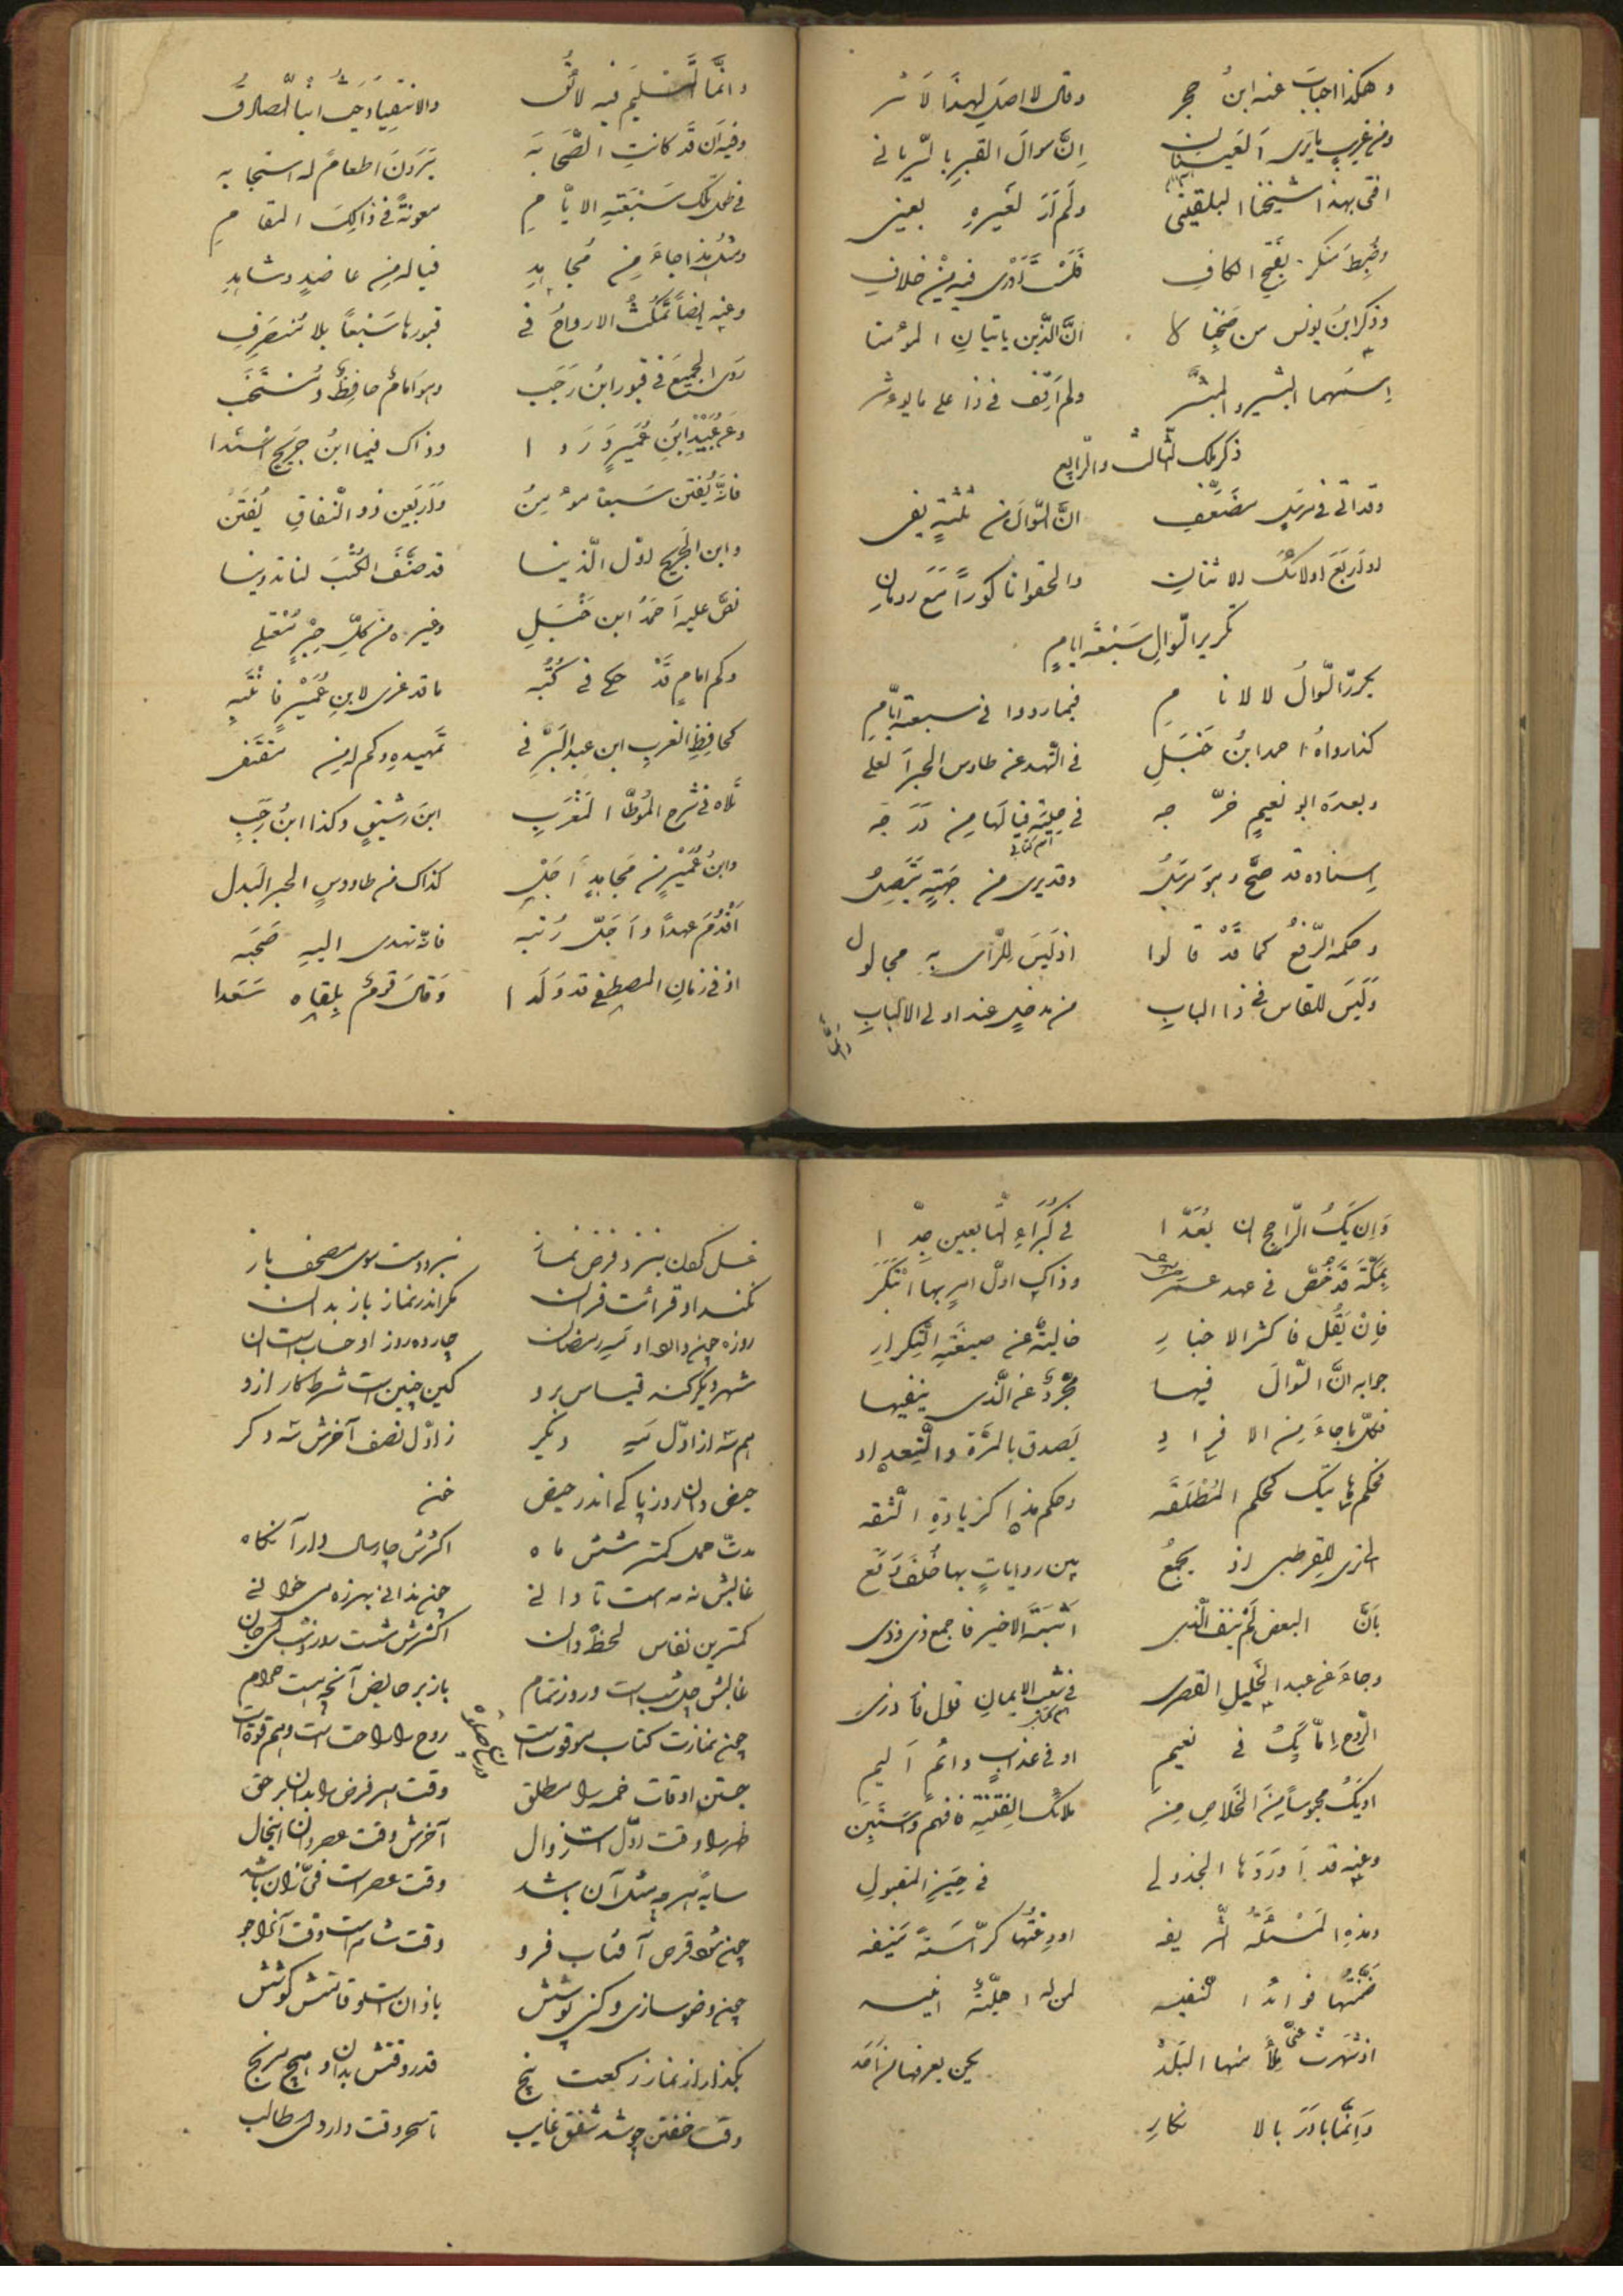 وهكذا اجاب عنه ابن حجر وقال لا اصل لهذا لاثر
ومن غريب ما يرى العينان ان سوال القبر بالسرياني
افتى بهذا شيخنا البلقيني ولم ار لغيره بعيني
وضبط منكر بفتح الكاف فلست ادري فيه من خلاف
وذكر ابن يونس من صحبنا ان الذين ياتيان المؤمنا
اسمهما البشير والمبشر ولم اقف في ذا على ما يوثر
ذكر ملك الثالث والرابع
وقد اتى في مرسل مضعف ان السوال من ثلثة يفي
او اربع اولائك الاثنان والحقوا ناكورا مع رومان
تكرير السوال سبعة ايام
يكرر السوال للانام فيما رووا في سبعة ايام
كذا رواه احمد ابن حنبل في الزهد عن طاوس الحبر العلي
وبعده ابو نعيم خرجه في حلية فيا لها من درجه
اسناده قد صح وهو مرسل وقد يرى من جهة يتصل
وحكمه الرفع كما قد قالوا اذ ليس للرأى به مجال
وليس للقياس في ذا الباب من مدخل عند اولى الالباب
وانما
وانما التسليم فيه لائق والانقياد حيث انبا الصادق
وفيه ان قد كانت الصحابه يرون اطعاما له استجابه
في ظل تلك سبعة الايام معونة في ذالك المقام
ومثل هذا جاء من مجاهد فيا له من عاضد وشاهد
وعنه ايضا تمكث الارواح في قبورها سبعا بلا منصرف
روى الجميع في قبور ابن رجب وهو امام حافظ ومنتخب
وعن عبيد ابن عمير وردا وذاك فيما ابن جريج اسندا
فانه يفتن سبعا مؤمن واربعين ذو النفاق يفتن
وابن الجريج اول الذينا قد صنف الكتب لنا تدوينا
نص عليه احمد ابن حنبل وغيره من كل حبر معتلي
وكم امام قد حكى في كتبه ما قد عزى لابن عمير فانتبه
كحافظ الغرب ابن عبد البر في تمهيده وكم له من مقتفى
تلاه في شرح الموطا المغرب ابن رشيق وكذا ابن رجب
وابن عمير من مجاهد اجل كذاك من طاووس الحبر البدل
اقدم عهدا واجل رتبه فانه تهدى اليه صحبه
اذ في زمان المصطفى قد ولدا وقال قوم بلقاه سعدا
وان يك الراجح ان يعدا في كبراء التابعين جدا
بمكة قد قص في عهد عمر وذاك اول امر بها ابتكر
فان يقل فاكثر الاخبار خالية عن صيغة التكرار
جوابه ان السوال فيها مجرد عن الذى ينفيها
فكل ما جاء من الافراد يصدق بالمرة والتعداد
فحكم هاتيك كحكم المطلقه وحكم هذا كزيادة الثقه
الا ترى للقرطبى اذ يجمع بين روايات بها خلف وقع
بان البعض لم ينف الذى اثبته الاخير فاجمع ذى وذى
وجاء عن عبد الجليل القصرى في شعب الايمان قول فادرى
الروح اما يك في نعيم او في عذاب دائم اليم
او يك محبوسا من الخلاص من ملائك الفتنة فافهم واستبن
وعنه قد اوردها الجذولى في حيز المقبول
وهذه المسئلة الشريفه اودعتها كراسة منيفه
ضمنتها فوائد النفيسه لمن له اجلة انيسه
اذ شهرت عنى ملا منها البلد يحن يعرفها من احد
وانما بادر بالانكار
غسل كفلن بنيز و فرض نماز نبرد دست سوى مصحف باز
نكند او قرائت قران مكر اندر نماز باز بدان
روزه چن و او سى رمضان چارده روز او حساب است ان
شهر ديكر كنه قياس برو كين چنين است شرط كار ازو
هم سه از اول سه ديكر ز اول نصف آخرش سه دكر
حيض دان روز پاكى اندر حيض
مدت حمل كمتر شش ماه اكثرش چار سال دارد آنكاه
غالبش نه مه است تا دانى چن بدانى بهرزه مى خوانى
كمترين نفاس لحظه دان اكثرش شست روز و شب مى خوان
غالبش چل شب است و روز تمام باز بر حايض آنچه هست حرام
چن نمازت كتاب موقوت است روح را راحت است و هم قوت است
جستن اوقات خمسه را مطلق وقت هر فرض را بدان بر حق
ظهر را وقت اول است زوال آخرش وقت عصر دان اينحال
سايه هر چه مثل آن باشد وقت عصر است فى زان باشد
چن شود قرص آفتاب فرو وقت شام است وقت آنرا جو
چن وضو سازى و كنى پوشش با اذان است و قامتش كوشش
بكذار از نماز ركعت پنج قدر وقتش بدان و هيچ مرنج
وقت خفتن چو شد شفق غايب تا سحر وقت دارد اى طالب